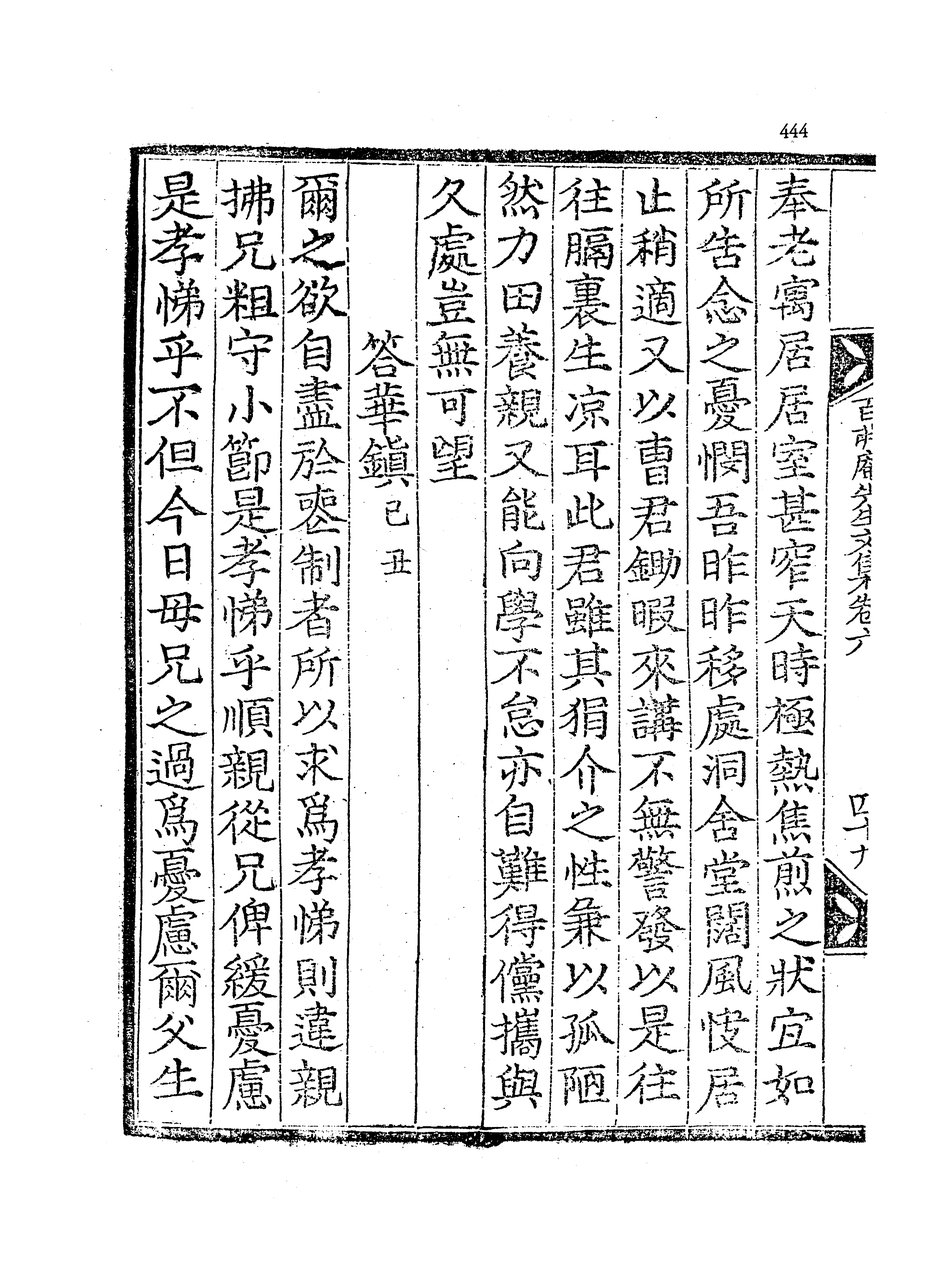 444
奉老寓居居室甚窄天時極熱焦煎之狀宜如
所告念之憂憫吾昨昨移處洞舍堂闊風㥘居
止稍適又以曹君鋤暇來講不無警發以是往
往膈裏生凉耳此君雖其狷介之性兼以孤陋
然力田養親又能向學不怠亦自難得儻攜與
久處豈無可望
答華鎭己丑
爾之欲自盡於喪制者所以求爲孝悌則違親
拂兄粗守小節是孝悌乎順親從兄俾緩憂慮
是孝悌乎不但今日母兄之過爲憂慮爾父生
先生文集卷六
四十